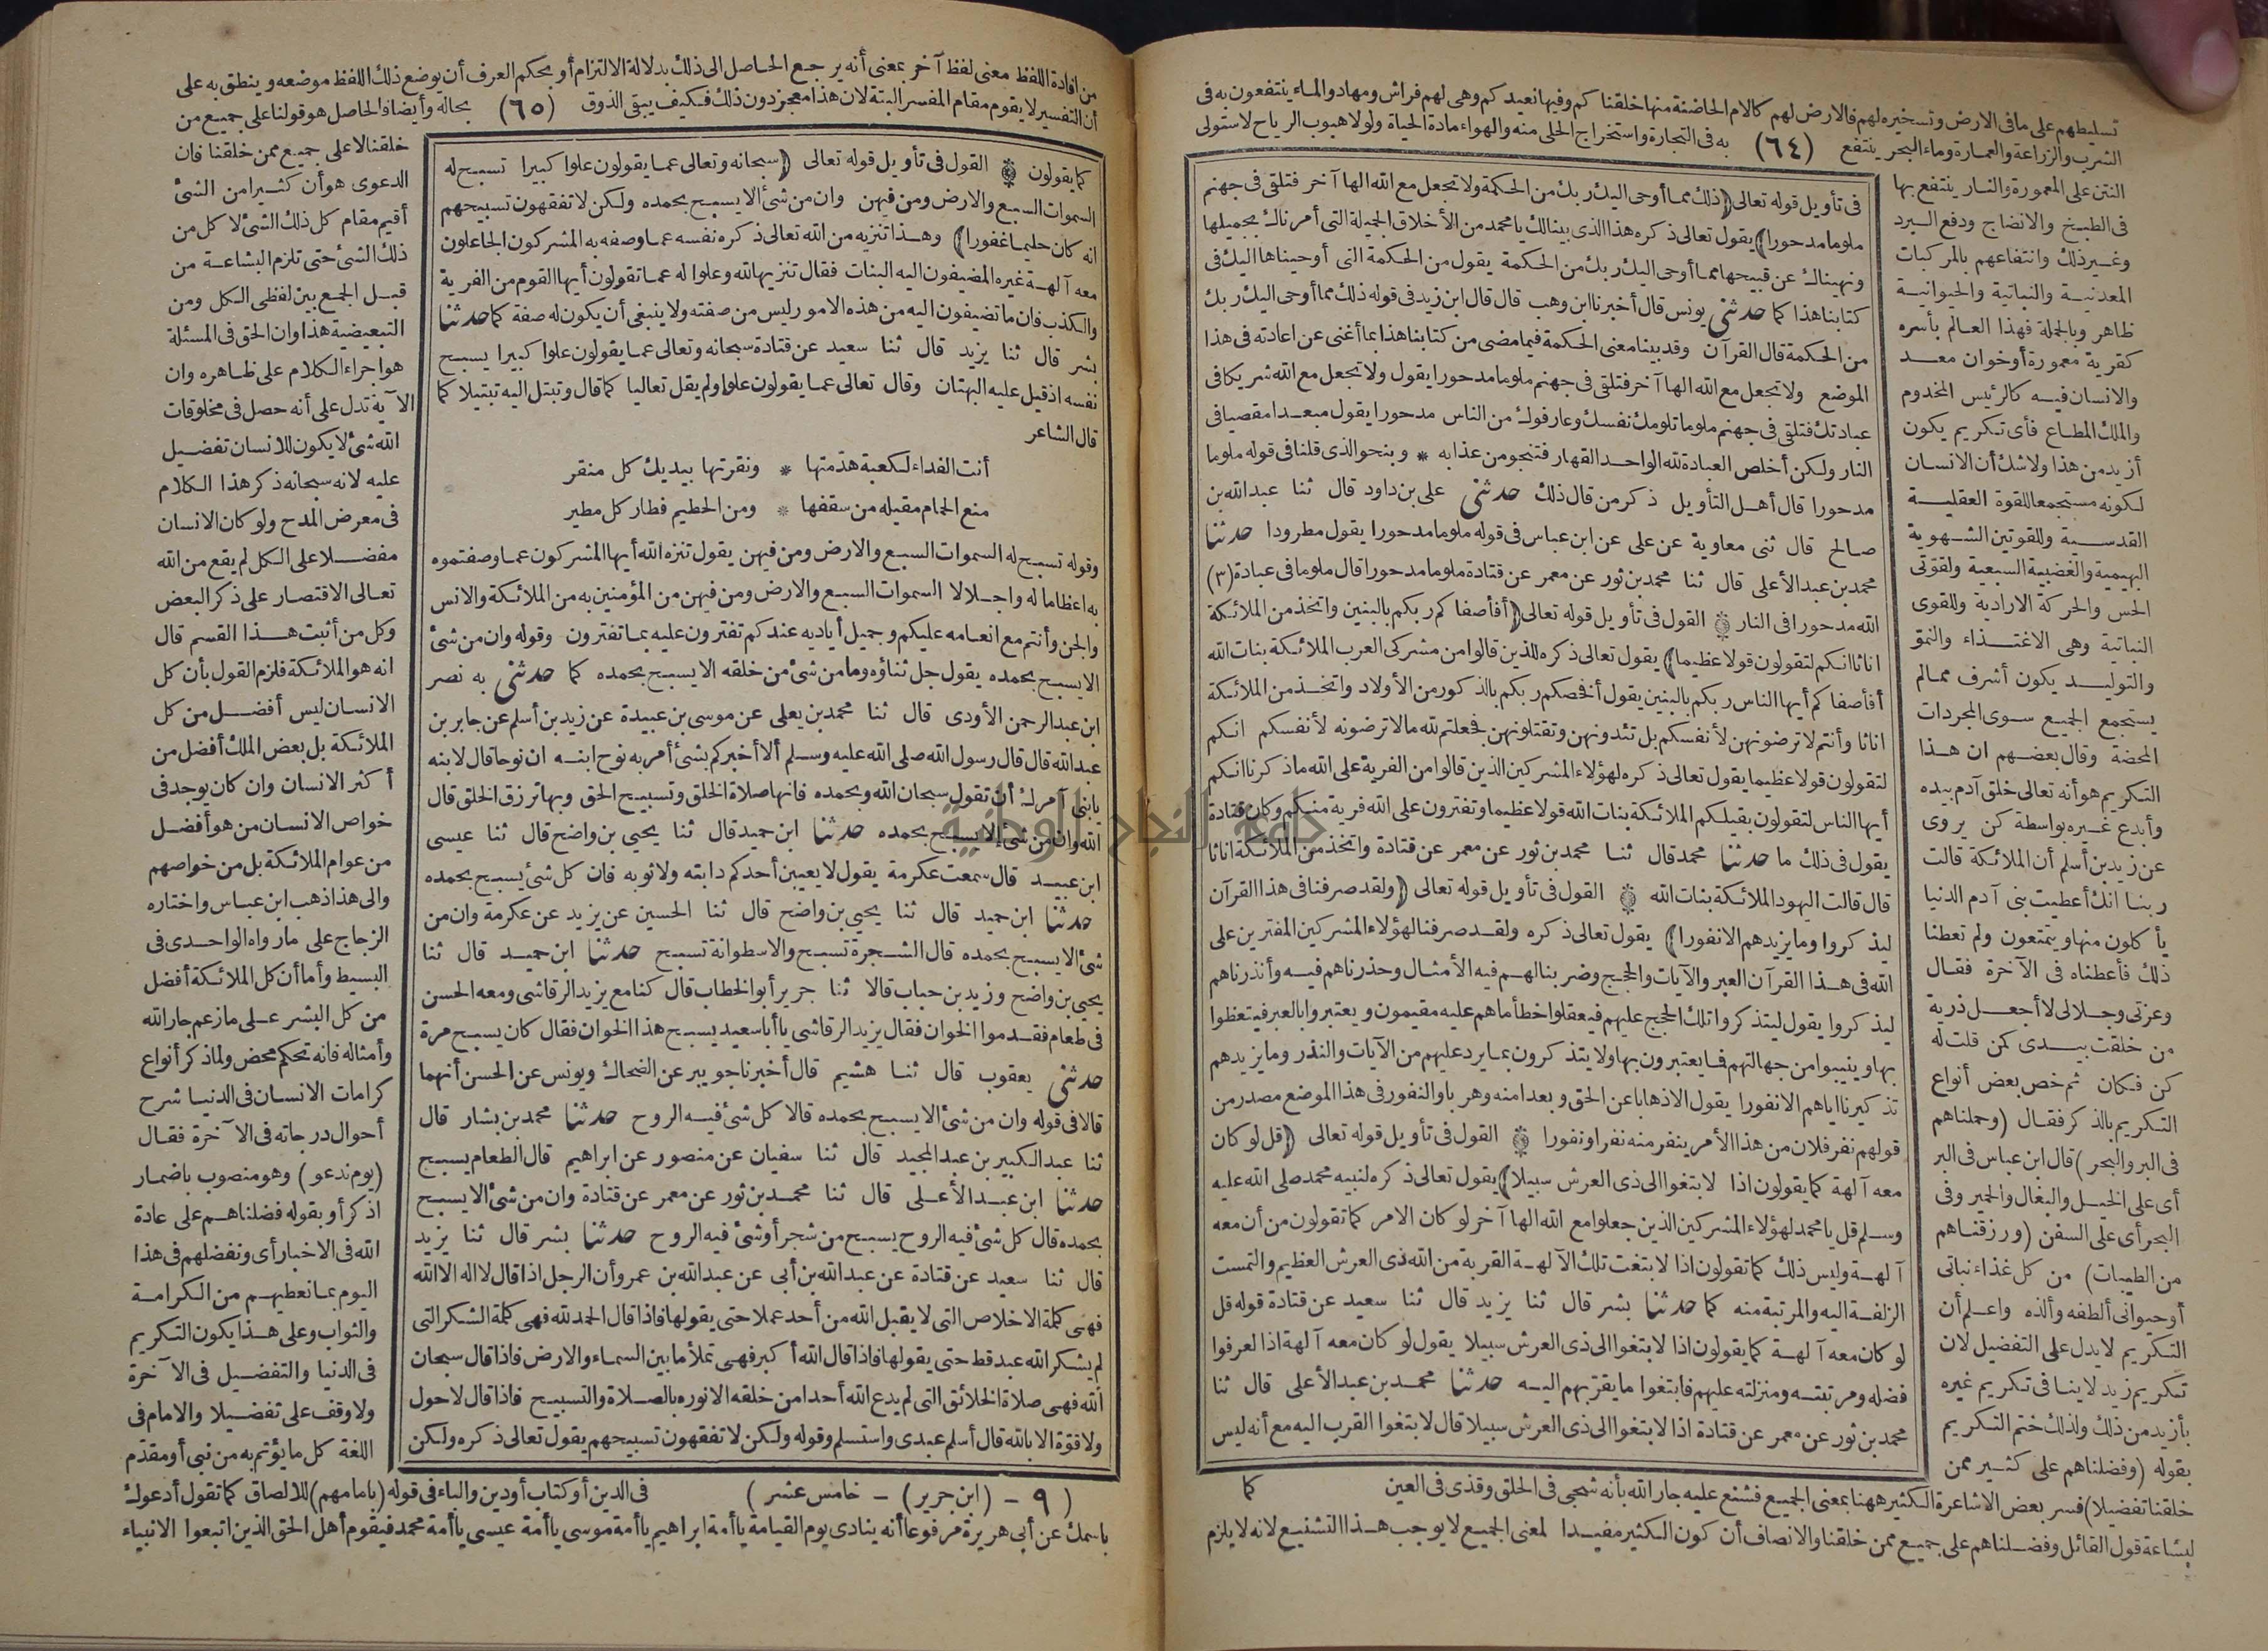 تسليطهم على ما فى الارض وتسخيره لهم فالارض لهم كالام الحاضنة منها خلقنا كم وفيها نعيدكم وهى لهم فراش ومهاد والماء ينتفعون به فى
الشرب والزراعة والعمارة وماء البحر ينتفع (٦٤) به فى التجارة واستخراج الحلى منه والهواء مادة الحياة ولولا هبوب الرياح لاستولى
النتن على المعمورة والنار ينتفع بها
فى الطبخ والانضاج ودفع البرد
وغير ذلك وانتفاعهم بالمركبات
المعدنية والنباتية والحيوانية
ظاهر وبالجملة فهذا العالم بأسره
كقرية معمورة أو خوان معد
والانسان فيه كالرئيس المخدوم
والملك المطاع فأى تكريم يكون
أزيد من هذا ولا شك أن الانسان
لكونه مستجمعا للقوة العقلية
القدسية وللقوتين الشهوية
البهيمية والغضبية السبعية ولقوّتى
الحس والحركة الارادية وللقوى
النباتية وهى الاغتذاء والنموّ
والتوليد يكون أشرف مما لم
يستجمع الجميع سوى المجردات
المحضة وقال بعضهم ان هذا
التكريم هو أنه تعالى خلق آدم بيده
وأبدع غيره بواسطة كن يروى
عن زيد بن أسلم أن الملائكة قالت
ربنا انك أعطيت بنى آدم الدنيا
يأكلون منها ويتمتعون ولم تعطنا
ذلك فأعطناه فى الآخرة فقال
وعزتى وجلالى لا أجعل ذرية
من خلقت بيدى كمن قلت له
كن فكان ثم خص بعض أنواع
التكريم بالذكر فقال (وحملناهم
فى البر والبحر) قال ابن عباس فى البر
أى على الخيل والبغال والحمير وفى
البحر أى على السفن (ورزقناهم
من الطيبات) من كل غذاء نباتى
أو حيوانى ألطفه وألذه واعلم أن
التكريم لا يدل على التفضيل لان
تكريم زيد لا ينافى تكريم غيره
بأزيد من ذلك ولذلك ختم التكريم
بقوله (وفضلناهم على كثير ممن
فى تأويل قوله تعالى (ذلك مما أوحى اليك ربك من الحكمة ولا تجعل مع الله الها آخر فتلقى فى جهنم
ملوما مدحورا) يقول تعالى ذكره هذا الذى بينا لك يا محمد من الأخلاق الجميلة التى أمرناك بجميلها
ونهيناك عن قبيحها مما أوحى اليك ربك من الحكمة يقول من الحكمة التى أوحيناها اليك فى
كتابنا هذا كما حدثنى يونس قال أخبرنا ابن وهب قال قال ابن زيد فى قوله ذلك مما أوحى اليك ربك
من الحكمة قال القرآن وقد بينا معنى الحكمة فيما مضى من كتابنا هذا بما أغنى عن اعادته فى هذا
الموضع ولا تجعل مع الله الها آخر فتلقى فى جهنم ملوما مدحورا يقول ولا تجعل مع الله شريكا فى
عبادتك فتلقى فى جهنم ملوما تلومك نفسك وعارفوك من الناس مدحورا يقول مبعدا مقصيا فى
النار ولكن أخلص العبادة لله الواحد القهار فتنجو من عذابه * وبنحو الذى قلنا فى قوله ملوما
مدحورا قال أهل التأويل ذكر من قال ذلك حدثنى على بن داود قال ثنا عبد الله بن
صالح قال ثنى معاوية عن على عن ابن عباس فى قوله ملوما مدحورا يقول مطرودا حدثنا
محمد بن عبد الأعلى قال ثنا محمد بن ثور عن معمر عن قتادة ملوما مدحورا قال ملوما فى عبادة (٣)
الله مدحورا فى النار ۞ القول فى تأويل قوله تعالى (أفأصفاكم ربكم بالبنين واتخذ من الملائكة
اناثا انكم لتقولون قولا عظيما) يقول تعالى ذكره للذين قالوا من مشركى العرب الملائكة بنات الله
أفأصفاكم أيها الناس ربكم بالبنين يقول أفخصكم ربكم بالذكور من الأولاد واتخذ من الملائكة
اناثا وأنتم لا ترضونهن لأنفسكم بل تئدونهن وتقتلونهن فجعلتم لله ما لا ترضونه لأنفسكم انكم
لتقولون قولا عظيما يقول تعالى ذكره لهؤلاء المشركين الذين قالوا من الفرية على الله ما ذكرنا انكم
أيها الناس لتقولون بقيلكم الملائكة بنات الله قولا عظيما وتفترون على الله فرية منكم وكان قتادة
يقول فى ذلك ما حدثنا محمد قال ثنا محمد بن ثور عن معمر عن قتادة واتخذ من الملائكة اناثا
قال قالت اليهود الملائكة بنات الله ۞ القول فى تأويل قوله تعالى (ولقد صرفنا فى هذا القرآن
ليذكروا وما يزيدهم الا نفورا) يقول تعالى ذكره ولقد صرفنا لهؤلاء المشركين المفترين على
الله فى هذا القرآن العبر والآيات والحجج وضربنا لهم فيه الأمثال وحذرناهم فيه وأنذرناهم
ليذكروا يقول ليتذكروا تلك الحجج عليهم فيعقلوا خطأ ما هم عليه مقيمون ويعتبروا بالعبر فيتعظوا
بها وينيبوا من جهالتهم فما يعتبرون بها ولا يتذكرون بما يرد عليهم من الآيات والنذر وما يزيدهم
تذكيرنا اياهم الا نفورا يقول الا ذهابا عن الحق وبعدا منه وهربا والنفور فى هذا الموضع مصدر من
قولهم نفر فلان من هذا الأمر ينفر منه نفرا ونفورا ۞ القول فى تأويل قوله تعالى (قل لو كان
معه آلهة كما يقولون اذا لابتغوا الى ذى العرش سبيلا) يقول تعالى ذكره لنبيه محمد صلى الله عليه
وسلم قل يا محمد لهؤلاء المشركين الذين جعلوا مع الله الها آخر لو كان الامر كما تقولون من أن معه
آلهة وليس ذلك كما تقولون اذا لابتغت تلك الآلهة القربة من الله ذى العرش العظيم والتمست
الزلفة اليه والمرتبة منه كما حدثنا بشر قال ثنا يزيد قال ثنا سعيد عن قتادة قوله قل
لو كان معه آلهة كما يقولون اذا لابتغوا الى ذى العرش سبيلا يقول لو كان معه آلهة اذا لعرفوا
فضله ومرتبته ومنزلته عليهم فابتغوا ما يقرّبهم اليه حدثنا محمد بن عبد الأعلى قال ثنا
محمد بن ثور عن معمر عن قتادة اذا لابتغوا الى ذى العرش سبيلا قال لابتغوا القرب اليه مع أنه ليس
كما
خلقنا تفضيلا) فسر بعض الاشاعرة الكثير ههنا بمعنى الجميع فشنع عليه جار الله بأنه شجى فى الحلق وقذى فى العين
لبشاعة قول القائل وفضلناهم على جميع ممن خلقنا والانصاف أن كون الكثير مفيدا لمعنى الجميع لا يوجب هذا التشنيع لانه لا يلزم
من افادة اللفظ معنى لفظ آخر بمعنى أنه يرجع الحاصل الى ذلك بدلالة الالتزام أو بحكم العرف أن يوضع ذلك اللفظ موضعه وينطق به على
أن التفسير لا يقوم مقام المفسر البتة لان هذا معجز دون ذلك فكيف يبقى الذوق (٦٥) بحاله وأيضا فالحاصل هو قولنا على جميع من
خلقنا لا على جميع ممن خلقنا فان
الدعوى هو أن كثيرا من الشئ
أقيم مقام كل ذلك الشئ لا كل من
ذلك الشئ حتى تلزم البشاعة من
قبل الجمع بين لفظى الكل ومن
التبعيضية هذا وان الحق فى المسئلة
هو اجراء الكلام على ظاهره وان
الآية تدل على أنه حصل فى مخلوقات
الله شئ لا يكون للانسان تفضيل
عليه لانه سبحانه ذكر هذا الكلام
فى معرض المدح ولو كان الانسان
مفضلا على الكل لم يقع من الله
تعالى الاقتصار على ذكر البعض
وكل من أثبت هذا القسم قال
انه هو الملائكة فلزم القول بأن كل
الانسان ليس أفضل من كل
الملائكة بل بعض الملك أفضل من
أكثر الانسان وان كان يوجد فى
خواص الانسان من هو أفضل
من عوام الملائكة بل من خواصهم
والى هذا ذهب ابن عباس واختاره
الزجاج على ما رواه الواحدى فى
البسيط وأما أن كل الملائكة أفضل
من كل البشر على ما زعم جار الله
وأمثاله فانه تحكم محض ولما ذكر أنواع
كرامات الانسان فى الدنيا شرح
أحوال درجاته فى الآخرة فقال
(يوم ندعو) وهو منصوب باضمار
اذكر أو بقوله فضلناهم على عادة
الله فى الاخبار أى ونفضلهم فى هذا
اليوم بما نعطيهم من الكرامة
والثواب وعلى هذا يكون التكريم
فى الدنيا والتفضيل فى الآخرة
ولا وقف على تفضيلا والامام فى
اللغة كل ما يؤتم به من نبى أو مقدّم
كما يقولون ۞ القول فى تأويل قوله تعالى (سبحانه وتعالى عما يقولون علوا كبيرا تسبح له
السموات السبع والارض ومن فيهن وان من شئ الا يسبح بحمده ولكن لا تفقهون تسبيحهم
انه كان حليما غفورا) وهذا تنزيه من الله تعالى ذكره نفسه عما وصفه به المشركون الجاعلون
معه آلهة غيره المضيفون اليه البنات فقال تنزيها لله وعلوا له عما تقولون أيها القوم من الفرية
والكذب فان ما تضيفون اليه من هذه الامور ليس من صفته ولا ينبغى أن يكون له صفة كما حدثنا
بشر قال ثنا يزيد قال ثنا سعيد عن قتادة سبحانه وتعالى عما يقولون علوا كبيرا يسبح
نفسه اذ قيل عليه البهتان وقال تعالى عما يقولون علوا ولم يقل تعاليا كما قال وتبتل اليه تبتيلا كما
قال الشاعر
أنت الفداء لكعبة هدّمتها * ونقرتها بيديك كل منقر
منع الحمام مقيله من سقفها * ومن الحطيم فطار كل مطير
وقوله تسبح له السموات السبع والارض ومن فيهن يقول تنزه الله أيها المشركون عما وصفتموه
به اعظاما له واجلالا السموات السبع والارض ومن فيهن من المؤمنين به من الملائكة والانس
والجن وأنتم مع انعامه عليكم وجميل أياديه عندكم تفترون عليه بما تفترون وقوله وان من شئ
الا يسبح بحمده يقول جل ثناؤه وما من شئ من خلقه الا يسبح بحمده كما حدثنى به نصر
ابن عبد الرحمن الأودى قال ثنا محمد بن يعلى عن موسى بن عبيدة عن زيد بن أسلم عن جابر بن
عبد الله قال قال رسول الله صلى الله عليه وسلم ألا أخبركم بشئ أمر به نوح ابنه ان نوحا قال لابنه
يا بنى آمرك أن تقول سبحان الله وبحمده فانها صلاة الخلق وتسبيح الحق وبها ترزق الخلق قال
الله وان من شئ الا يسبح بحمده حدثنا ابن حميد قال ثنا يحيى بن واضح قال ثنا عيسى
ابن عبيد قال سمعت عكرمة يقول لا يعيبن أحدكم دابته ولا ثوبه فان كل شئ يسبح بحمده
حدثنا ابن حميد قال ثنا يحيى بن واضح قال ثنا الحسين عن يزيد عن عكرمة وان من
شئ الا يسبح بحمده قال الشجرة تسبح والاسطوانة تسبح حدثنا ابن حميد قال ثنا
يحيى بن واضح وزيد بن حباب قالا ثنا جرير أبو الخطاب قال كنا مع يزيد الرقاشى ومعه الحسن
فى طعام فقدموا الخوان فقال يزيد الرقاشى يا أبا سعيد يسبح هذا الخوان فقال كان يسبح مرة
حدثنى يعقوب قال ثنا هشيم قال أخبرنا جويبر عن الضحاك ويونس عن الحسن أنهما
قالا فى قوله وان من شئ الا يسبح بحمده قالا كل شئ فيه الروح حدثنا محمد بن بشار قال
ثنا عبد الكبير بن عبد المجيد قال ثنا سفيان عن منصور عن ابراهيم قال الطعام يسبح
حدثنا ابن عبد الأعلى قال ثنا محمد بن ثور عن معمر عن قتادة وان من شئ الا يسبح
بحمده قال كل شئ فيه الروح يسبح من شجر أو شئ فيه الروح حدثنا بشر قال ثنا يزيد
قال ثنا سعيد عن قتادة عن عبد الله بن أبى عن عبد الله بن عمرو أن الرجل اذا قال لا اله الا الله
فهى كلمة الاخلاص التى لا يقبل الله من أحد عملا حتى يقولها فاذا قال الحمد لله فهى كلمة الشكر التى
لم يشكر الله عبد قط حتى يقولها فاذا قال الله أكبر فهى تملأ ما بين السماء والارض فاذا قال سبحان
الله فهى صلاة الخلائق التى لم يدع الله أحدا من خلقه الا نوره بالصلاة والتسبيح فاذا قال لا حول
ولا قوّة الا بالله قال أسلم عبدى واستسلم وقوله ولكن لا تفقهون تسبيحهم يقول تعالى ذكره ولكن
(٩ - (ابن جرير) - خامس عشر) فى الدين أو كتاب أو دين والباء فى قوله (بامامهم) للالصاق كما تقول أدعوك
باسمك عن أبى هريرة مرفوعا أنه ينادى يوم القيامة يا أمة ابراهيم يا أمة موسى يا أمة عيسى يا أمة محمد فيقوم أهل الحق الذين اتبعوا الانبياء
جامعة النجاح الوطنية